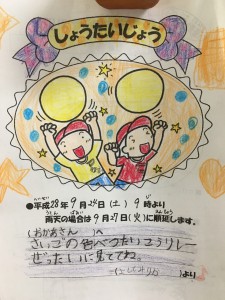 しょうたいじょう
●平成28年9月24日（土）9時より
雨天の場合は9月27日（火）に順延します。
（おかあさん）へ
さいごの色べつたいこうリレー
ぜったいに見ててね。
より